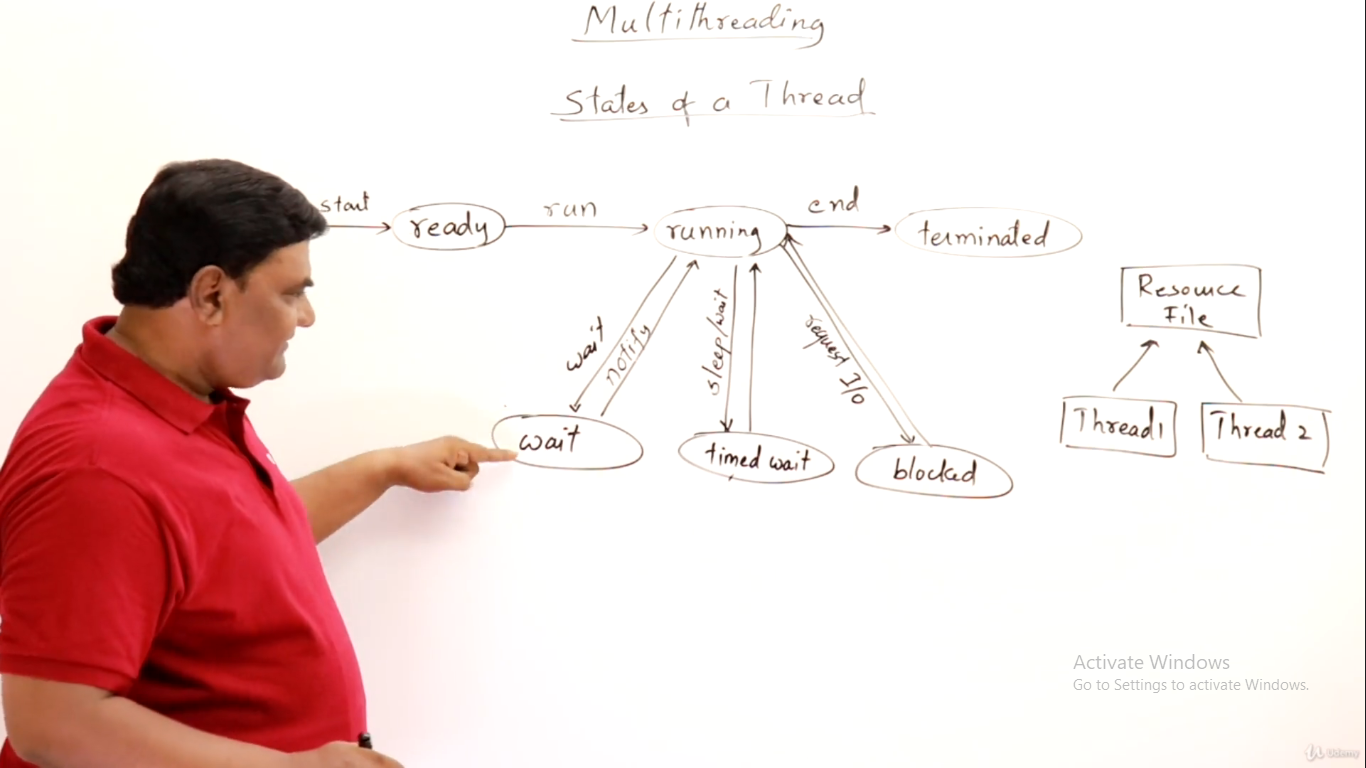 Multithreading
States of a Thread
start
ready
run
running
end
terminated
wait
notify
sleep/wait
request I/O
wait
timed wait
blocked
Resource
File
Thread1
Thread 2
Activate Windows
Go to Settings to activate Windows.
Udemy